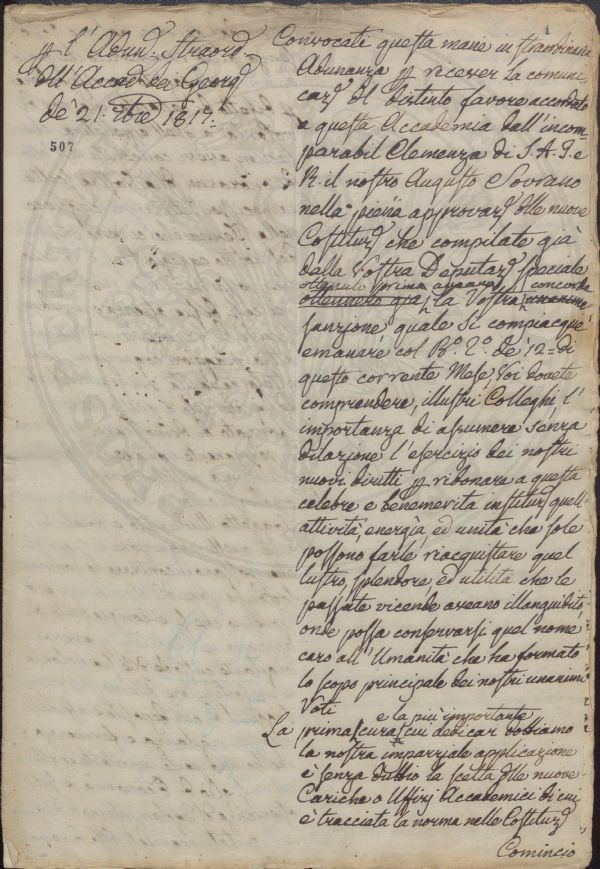 p l'Adun.ᵉ Straord.ᵃ
dell'Accad. dei Georg.
de' 21. 8bre 1817.
507
1
Convocati questa mane in straordinaria
Adunanza p ricever la comuni
caz.ᵉ del distinto favore accordato
a questa Accademia dall'incom
parabil Clemenza di S. A. I. e
R. il nostro Augusto Sovrano
nella piena approvaz.ᵉ delle nuove
Costituz.ⁱ che compilate già
dalla Vostra Deputaz.ᵉ speciale
ottenuto prima aveano concorde
ottennero già la Vostra unanime
sanzione quale si compiacque
emanare col R.º de' 12 = di
questo corrente Mese, Voi dovete
comprendere, illustri Colleghi l'
importanza di assumere senza
dilazione l'esercizio dei nostri
nuovi diritti p ridonare a questa
celebre e benemerita instituz.ᵉ quell'
attività, energia, ed unità che sole
possono farle riacquistare quel
lustro, splendore, ed utilità che le
passate vicende aveano illanguidito,
onde possa conservarsi quel nome
caro all'Umanità che ha formato
lo scopo principale dei nostri unanimi
Voti
e la più importante
La prima cura cui dedicar dobbiamo
la nostra imparziale applicazione
è senza dubbio la scelta delle nuove
Cariche o Uffizj Accademici di cui
è tracciata la norma nelle Costituz.ⁱ
Comincio